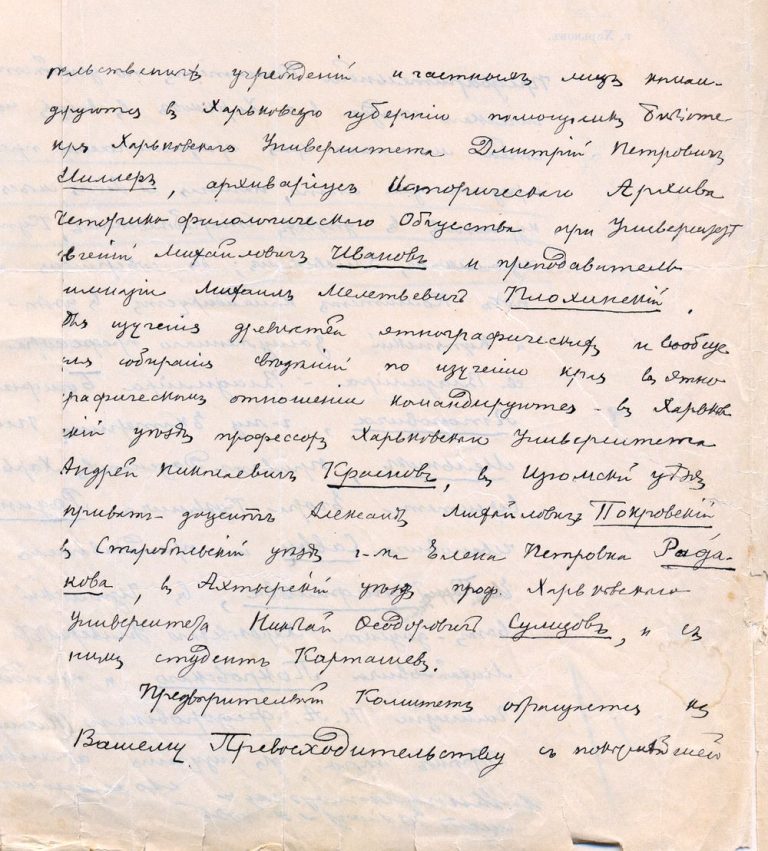 г. Харьковъ.
тельственныхъ учрежденій и частныхъ лицъ коман-
дируются въ Харьковскую губернію помощникъ библіоте-
каря Харьковскаго Университета Дмитрій Петровичъ
Миллеръ, архиваріусъ Историческаго Архива
Историко-филологическаго Общества при Университетѣ
Евгеній Михайловичъ Ивановъ и преподаватель
гимназіи Михаилъ Мелетьевичъ Плохинскій.
Для изученія древностей этнографическихъ и вообще
для собиранія свѣдѣній по изученію края въ этно-
графическомъ отношеніи командируются - въ Харьков-
скій уѣздъ профессоръ Харьковскаго Университета
Андрей Николаевичъ Красновъ, въ Изюмскій уѣздъ
приватъ-доцентъ Александръ Михайловичъ Покровскій
въ Старобѣльскій уѣздъ г-жа Елена Петровна Рада-
кова, въ Ахтырскій уѣздъ проф. Харьковскаго
Университета Николай Ѳеодоровичъ Сумцовъ, и съ
нимъ студентъ Карташевъ.
Предварительный Комитетъ обращается къ
Вашему Превосходительству съ покорнѣйшей